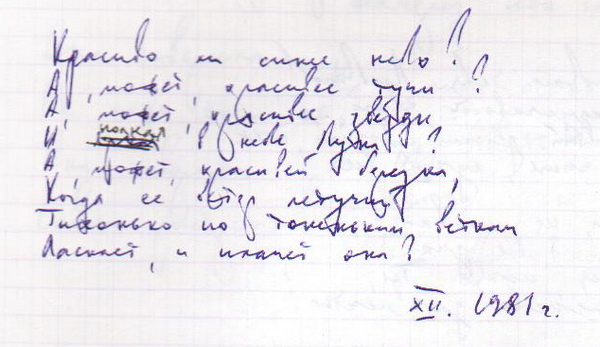 Красиво ли синее небо?
А, может, красивее тучи?
А, может, красивее звёзды
И полная в небе Луна?
А, может, красивей березка,
Когда ее ветер летучий
Тихонько по тоненьким веткам
Ласкает, и плачет она?
XII. 1981 г.